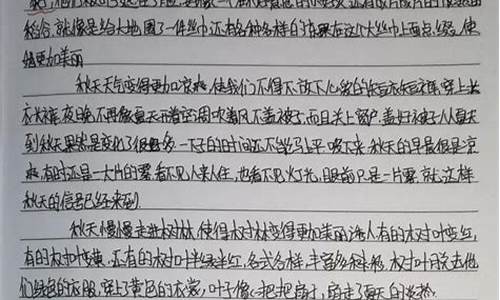 稻谷,就像是给大地围了一件丝巾还有各种各样的颜果在这个大丝巾上面点缀,使
她更加美丽
秋天天气变得更加凉爽,使我们不得不放下心爱的短衣短裤,穿上长
衣长裤,夜晚不再像夏天开着空调吹着风不盖被了,而且关上窗户,盖好被子,从夏天
到秋天果然是变化了很多一下子的时间还不能马上平 下来,秋天的早晨很是凉
爽,有时还是一大片的雾,看不见人来人往,也看不见灯光,眼前只是一片雾,就这样
秋天的信号已经来到
秋天慢慢走进树林,使得树林变得更加美丽诱人有的树叶变红,
有的树叶变黄,还有的树叶半绿半红,各式各样,丰富多彩,树叶脱去他
们绿色的衣服,穿上黄色的衣裳,叶子像一把把扇子,扇走了夏天的